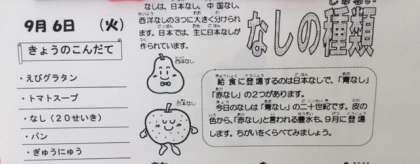 なしの種類
9月6日 (火)
きょうのこんだて
・えびグラタン
・トマトスープ
・なし(20せいき)
・パン
・ぎゅうにゅう
なしは、日本なし、中国なし、
西洋なしの3つに大きく分けられ
ます。日本では、主に日本なしが
作られています。
西洋なし
日本なし
給食に登場するのは日本なしで、「青なし」
「赤なし」の2つがあります。
今日のなしは「青なし」の二十世紀です。皮の
色から、「赤なし」と言われる豊水も、9月に登場し
ます。ちがいをくらべてみましょう。